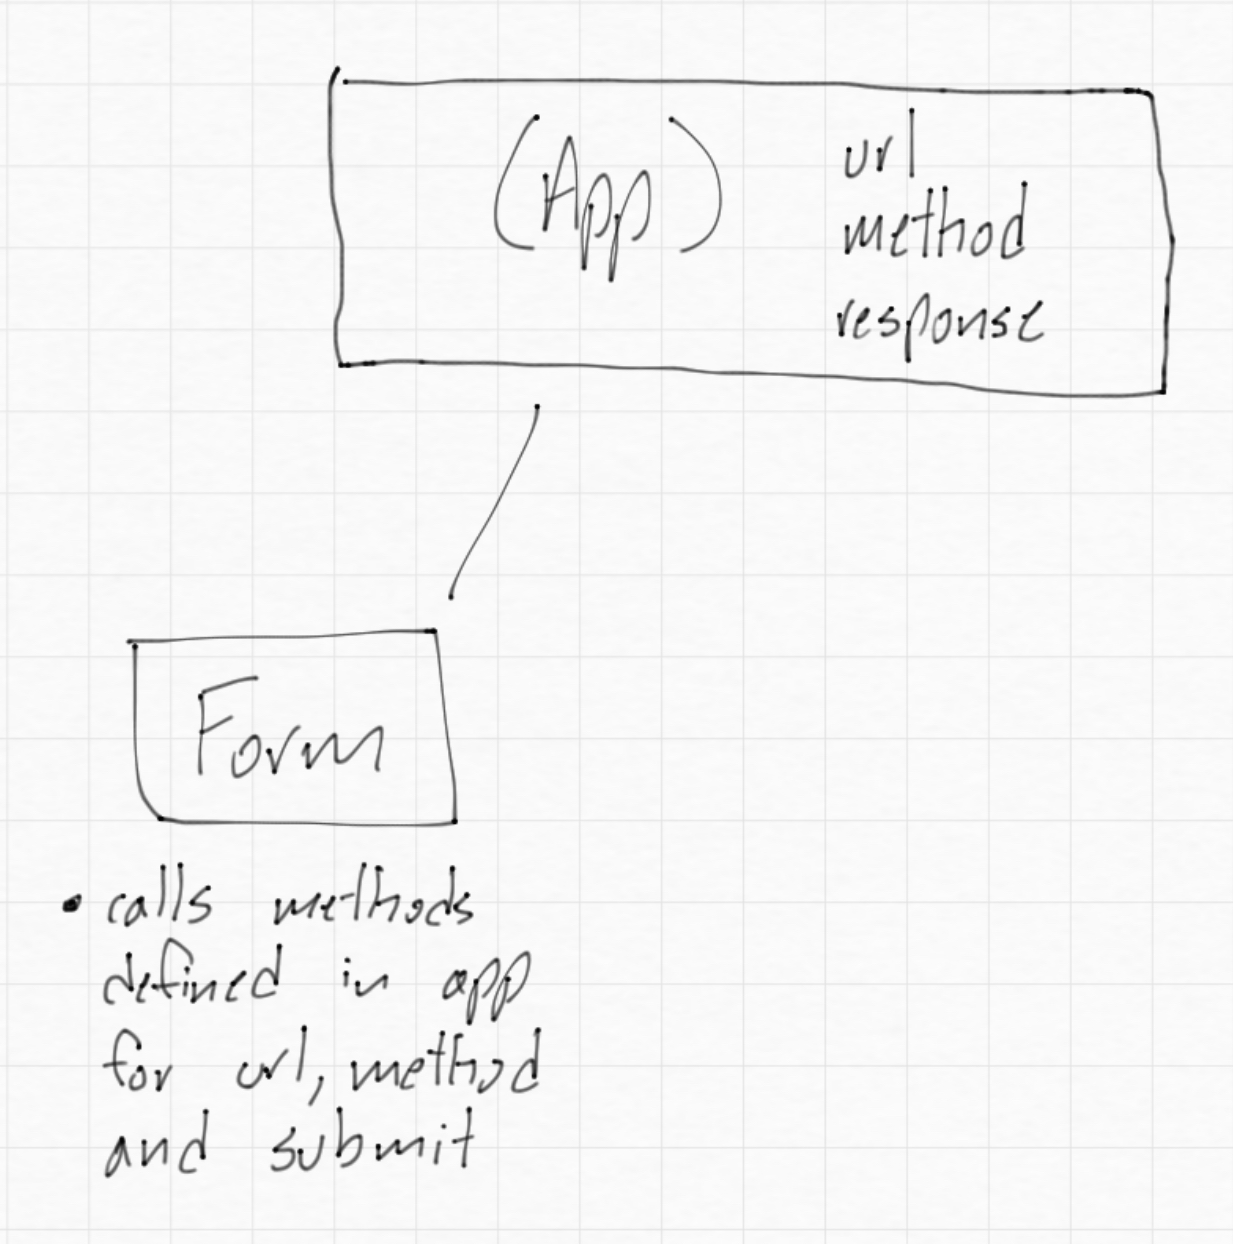 (App)
url
method
response
Form
• calls methods
defined in app
for url, method
and submit